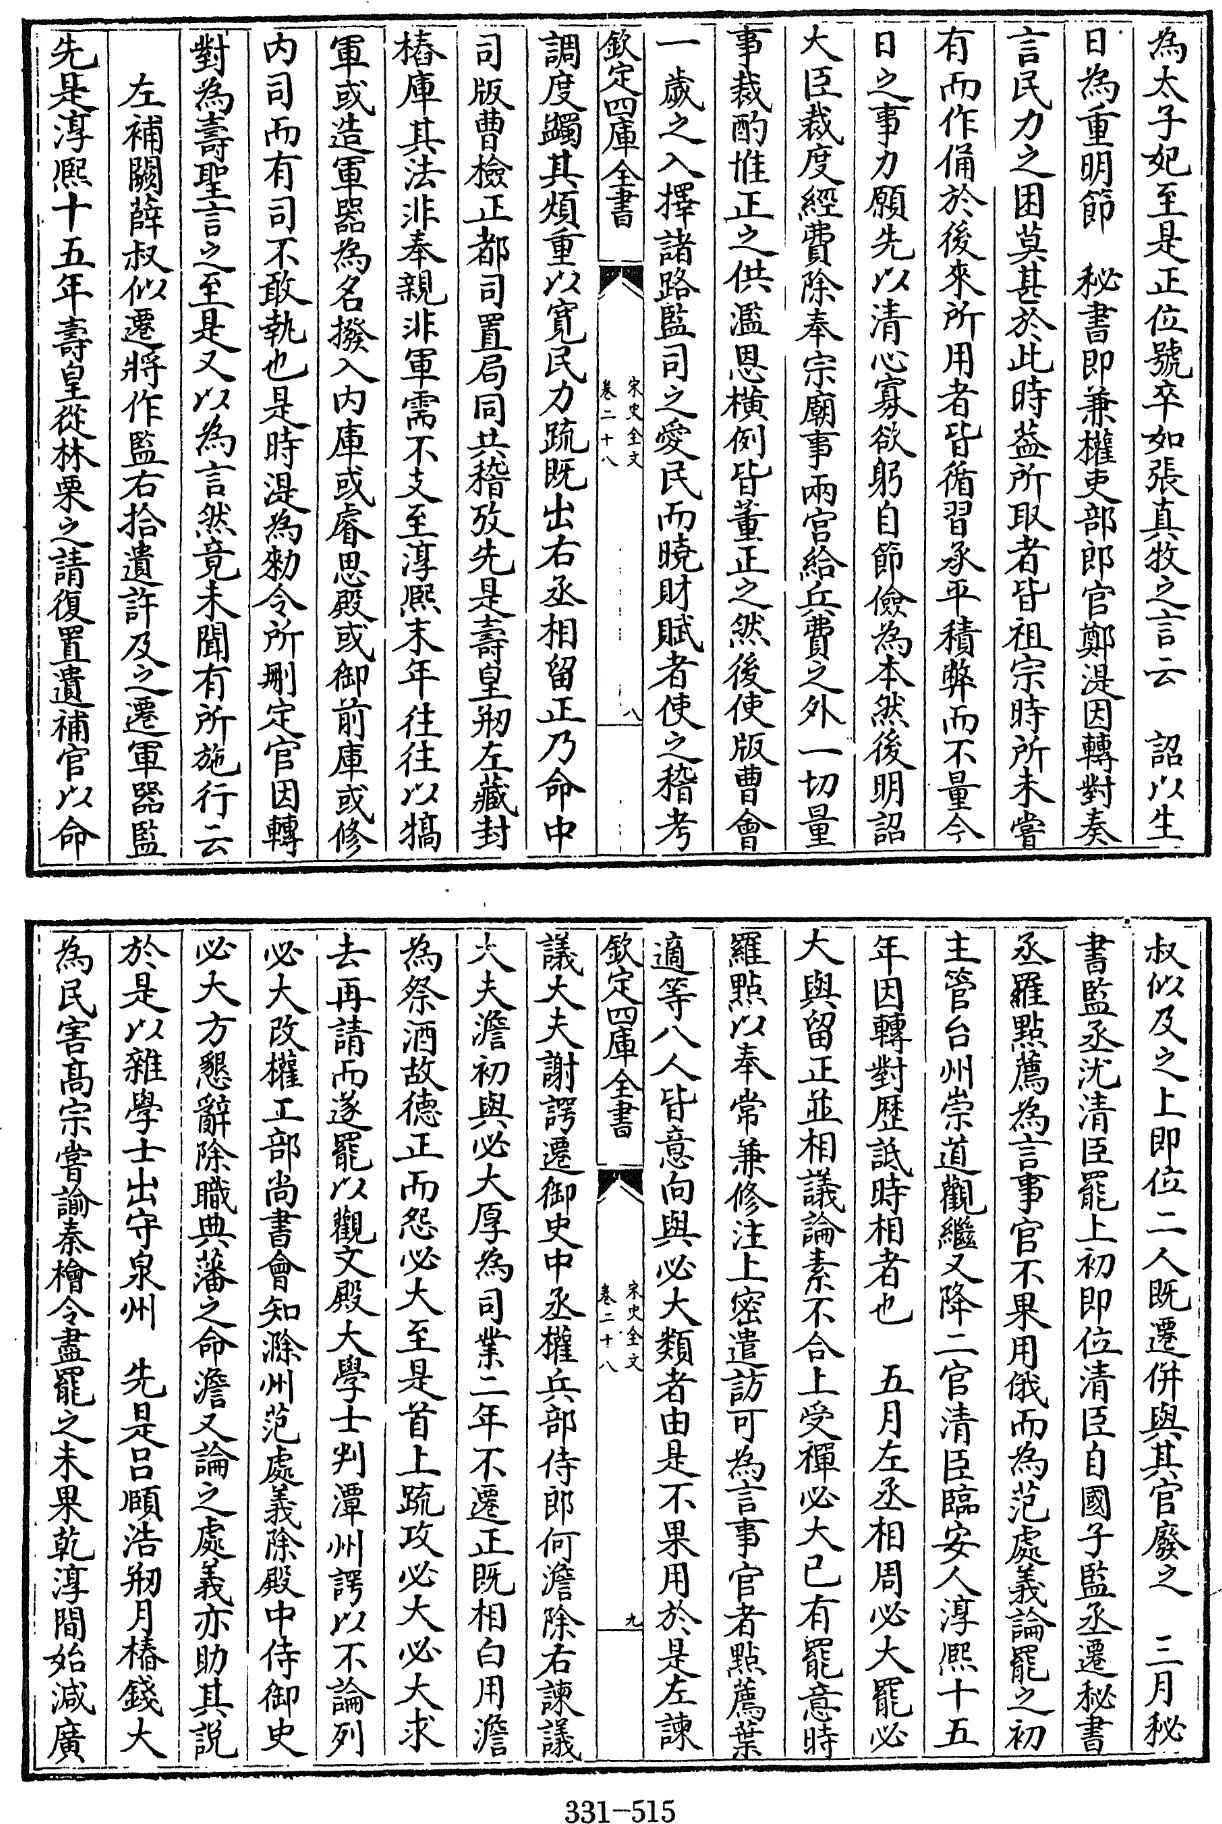 為太子妃至是正位號卒如張真牧之言云　詔以生
日為重明節　秘書郎兼權吏部郎官鄭湜因轉對奏
言民力之困莫甚於此時葢所取者皆祖宗時所未嘗
有而作俑於後來所用者皆循習承平積弊而不量今
日之事力願先以清心寡欲躬自節儉為本然後明詔
大臣裁度經費除奉宗廟事兩宮給兵費之外一切量
事裁酌惟正之供濫恩橫例皆董正之然後使版曹會
一歲之入擇諸路監司之愛民而曉財賦者使之稽考
欽定四庫全書
宋史全文
卷二十八
八
調度蠲其煩重以寬民力疏既出右丞相留正乃命中
司版曹檢正都司置局同共稽攷先是壽皇剏左藏封
樁庫其法非奉親非軍需不支至淳熙末年往往以犒
軍或造軍器為名撥入內庫或睿思殿或御前庫或修
內司而有司不敢執也是時湜為勑令所刪定官因轉
對為壽聖言之至是又以為言然竟未聞有所施行云
左補闕薛叔似遷將作監右拾遺許及之遷軍器監
先是淳熙十五年壽皇從林栗之請復置遺補官以命
叔似及之上即位二人既遷併與其官廢之　三月秘
書監丞沈清臣罷上初即位清臣自國子監丞遷秘書
丞羅點薦為言事官不果用俄而為范處義論罷之初
主管台州崇道觀繼又降二官清臣臨安人淳熙十五
年因轉對歷詆時相者也　五月左丞相周必大罷必
大與留正並相議論素不合上受禪必大已有罷意時
羅點以奉常兼修注上密遣訪可為言事官者點薦葉
適等八人皆意向與必大類者由是不果用於是左諫
欽定四庫全書
宋史全文
卷二十八
九
議大夫謝諤遷御史中丞權兵部侍郎何澹除右諫議
大夫澹初與必大厚為司業二年不遷正既相白用澹
為祭酒故德正而怨必大至是首上疏攻必大必大求
去再請而遂罷以觀文殿大學士判潭州諤以不論列
必大改權工部尚書會知滁州范處義除殿中侍御史
必大方懇辭除職典藩之命澹又論之處義亦助其説
於是以雜學士出守泉州　先是吕頤浩剏月樁錢大
為民害高宗嘗諭秦檜令盡罷之未果乾淳間始減廣
331-515